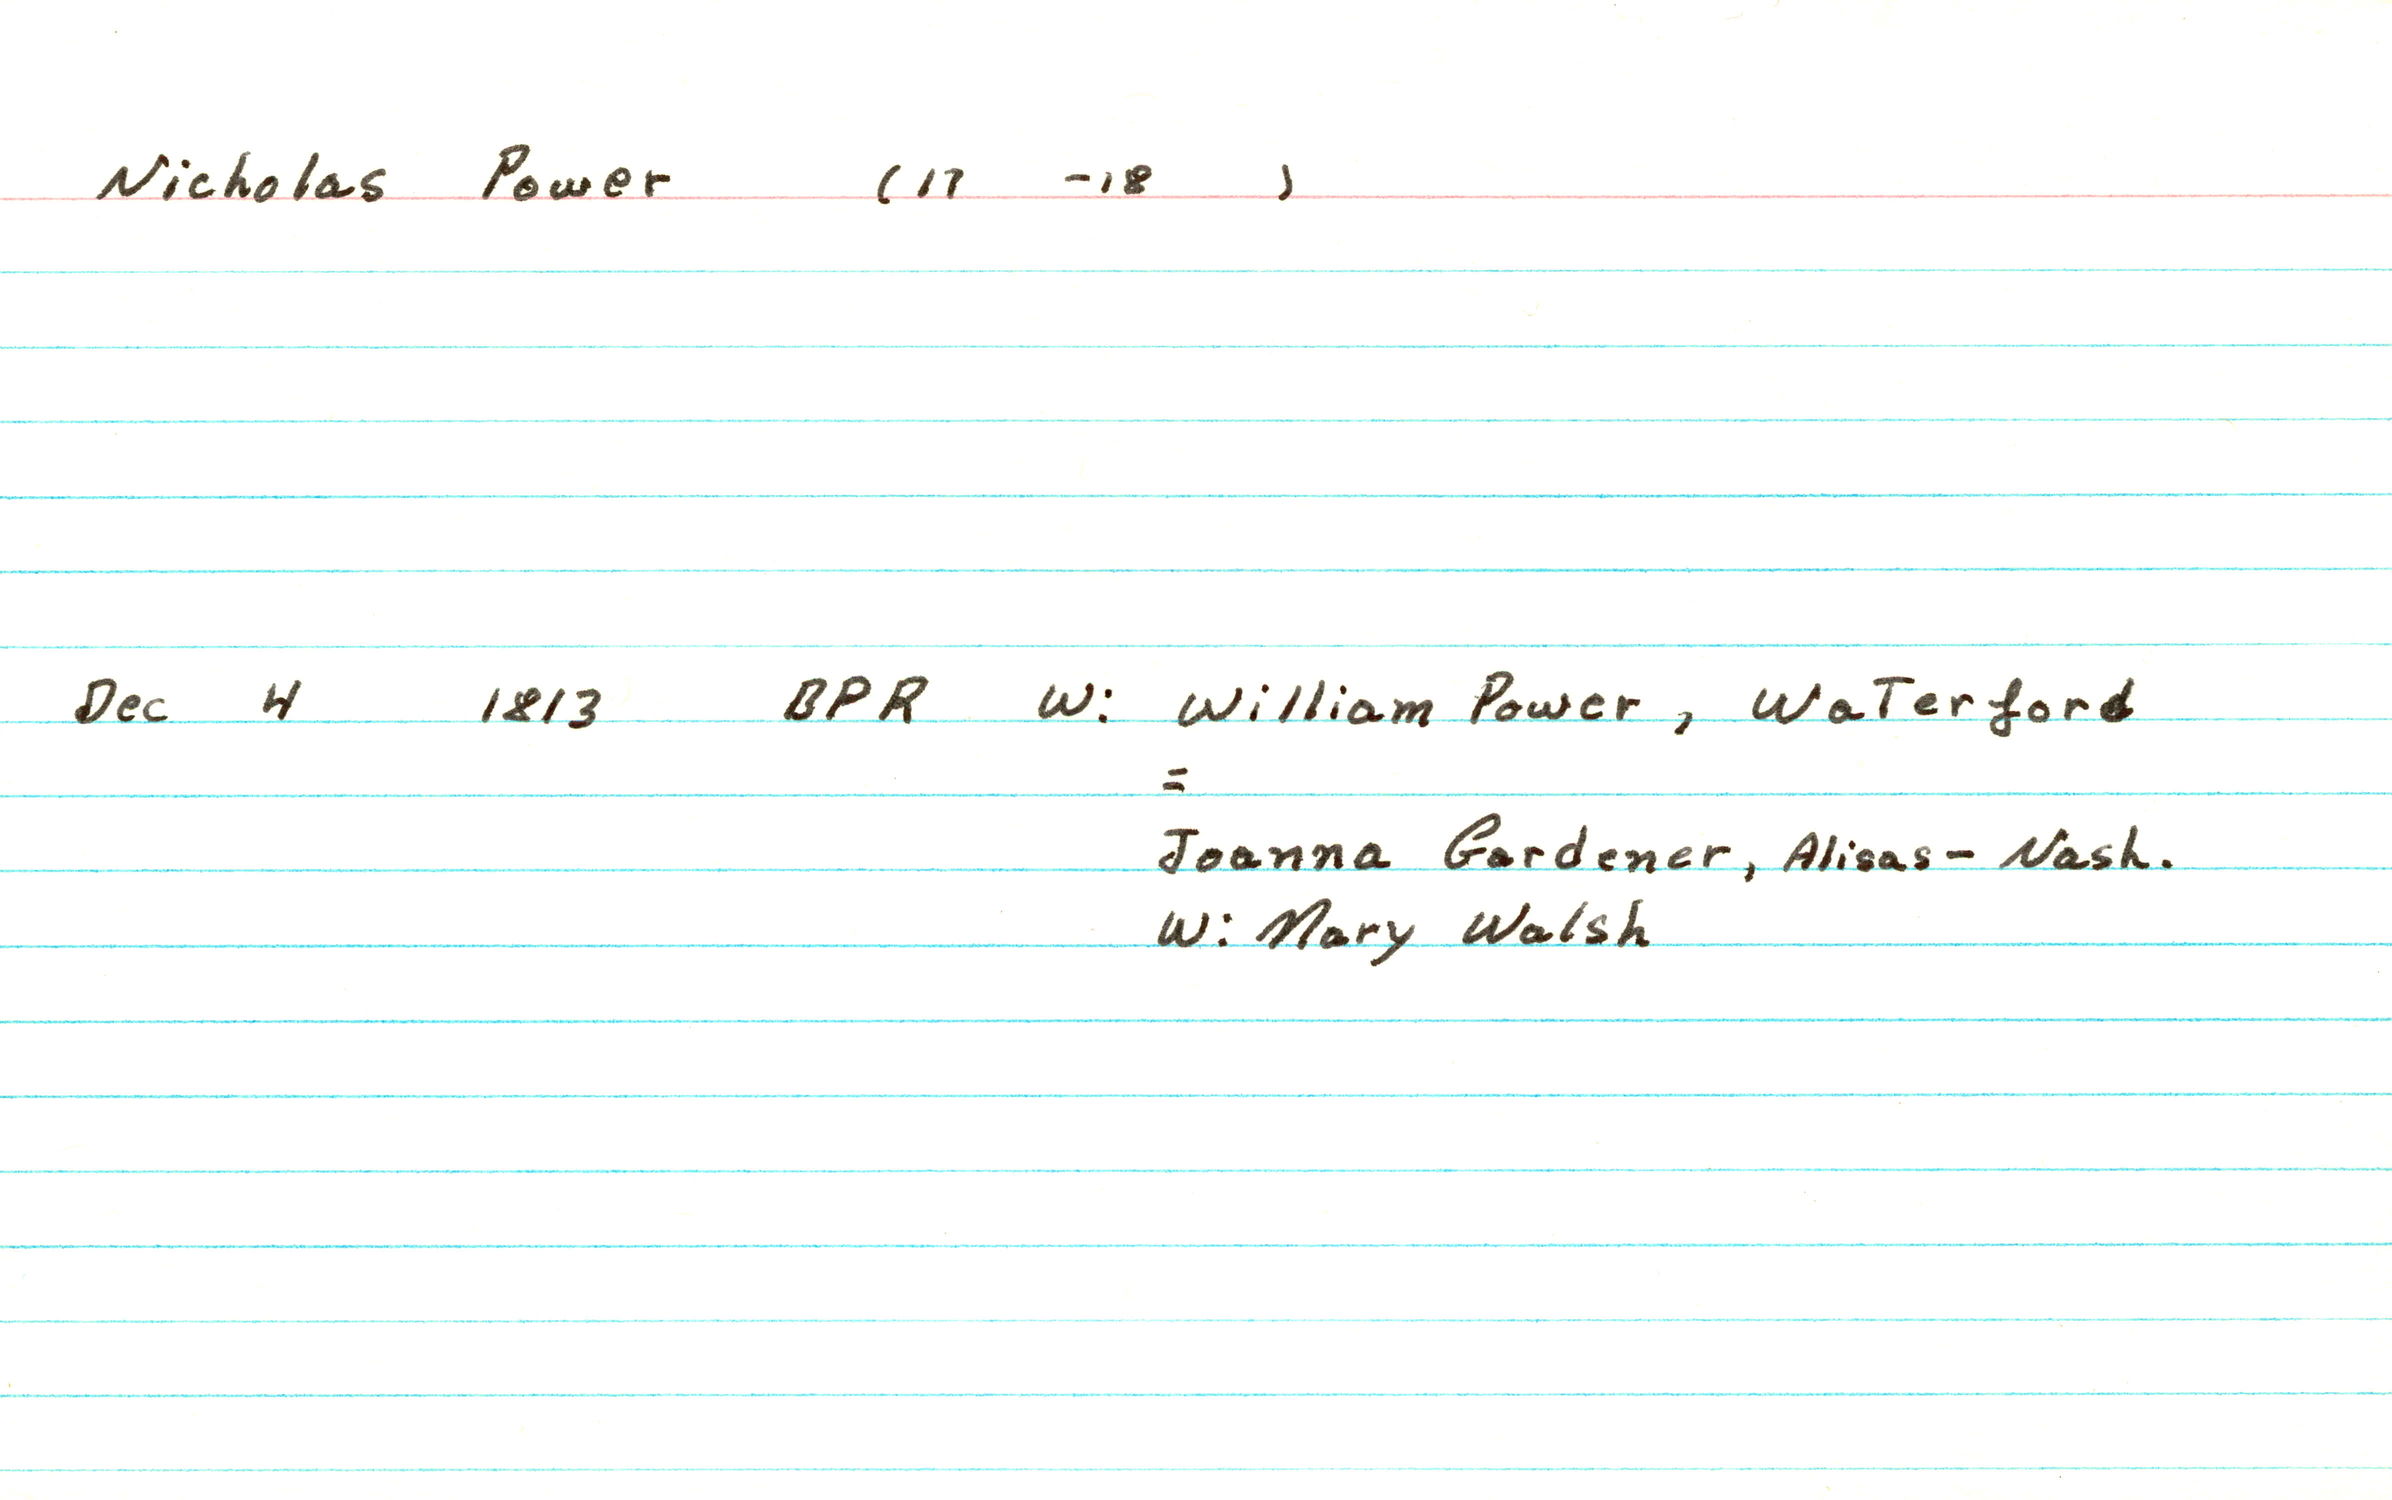 Nicholas Power (17 -18 )
Dec 4 1813 BPR W: William Power, Waterford
=
Joanna Gardener, Alisas- Nash.
W: Mary Walsh